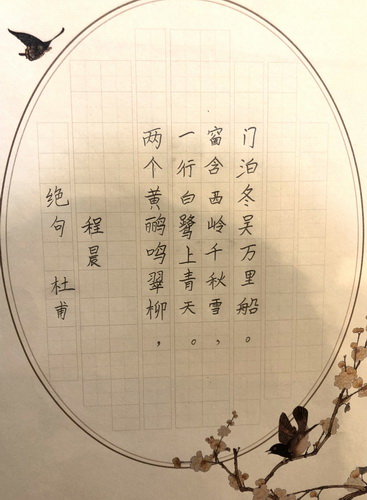 绝句 杜甫
程晨
两个黄鹂鸣翠柳，
一行白鹭上青天。
窗舍西岭千秋雪，
门泊冬吴万里船。